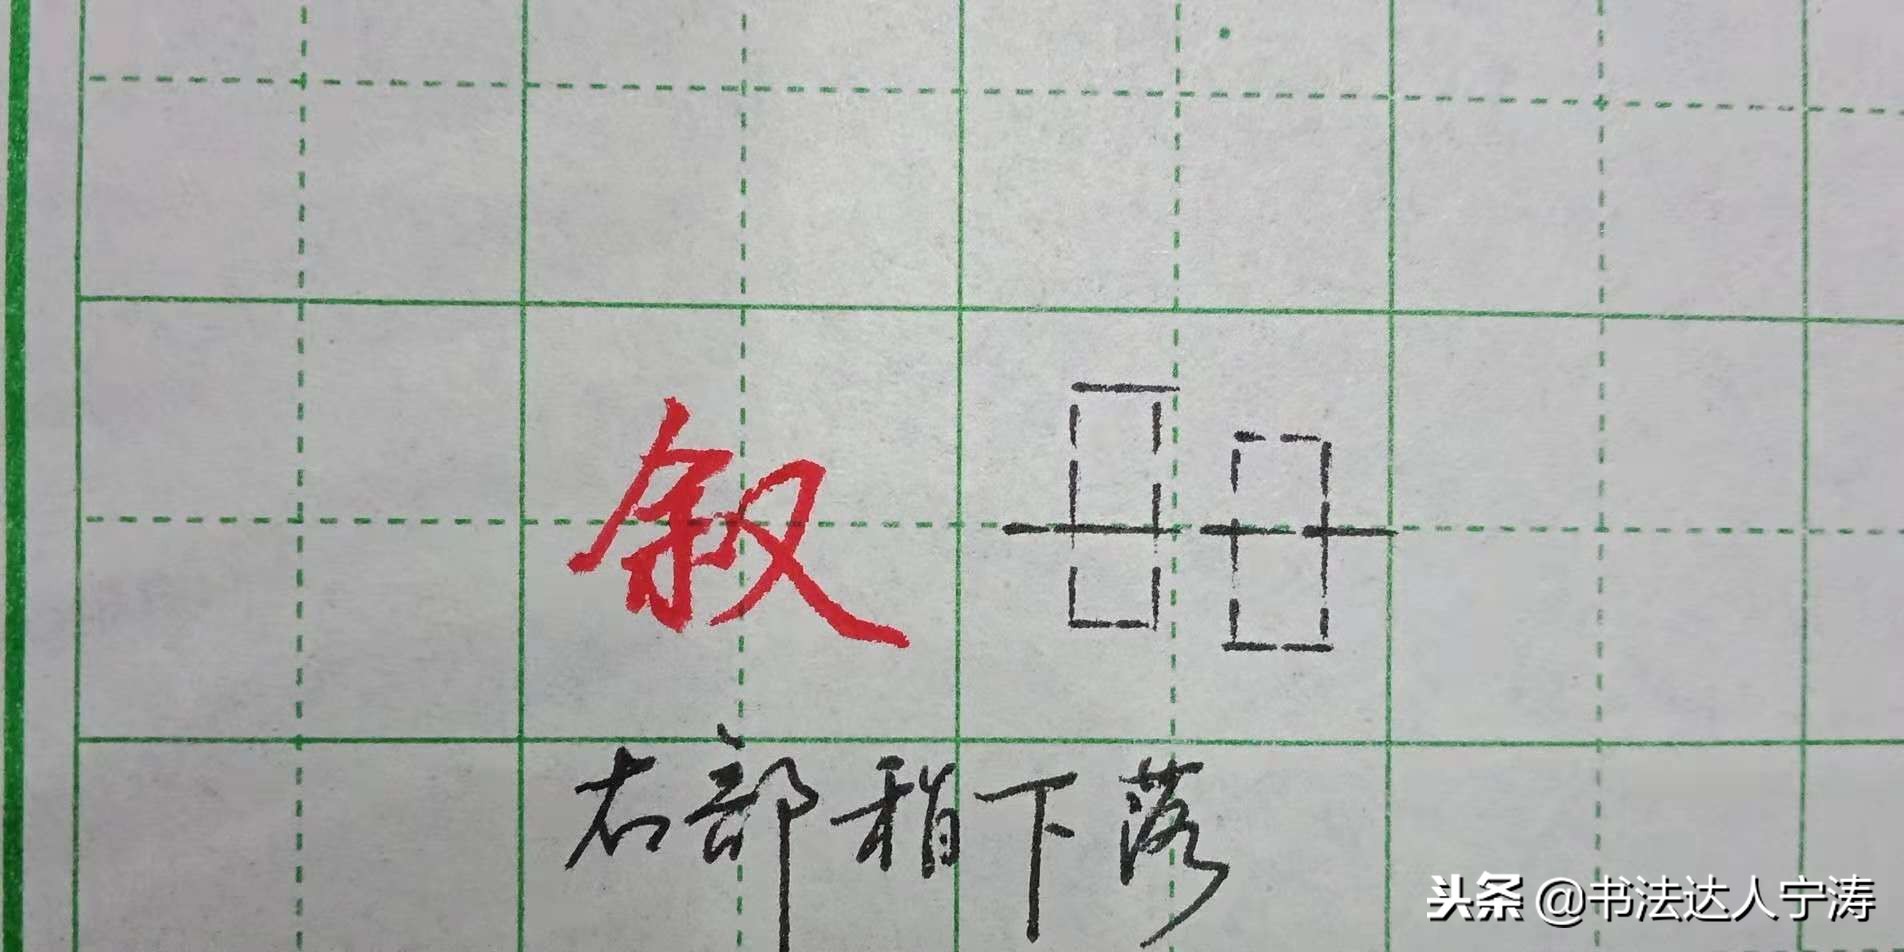 叙
右部稍下落
头条 @书法达人宁涛